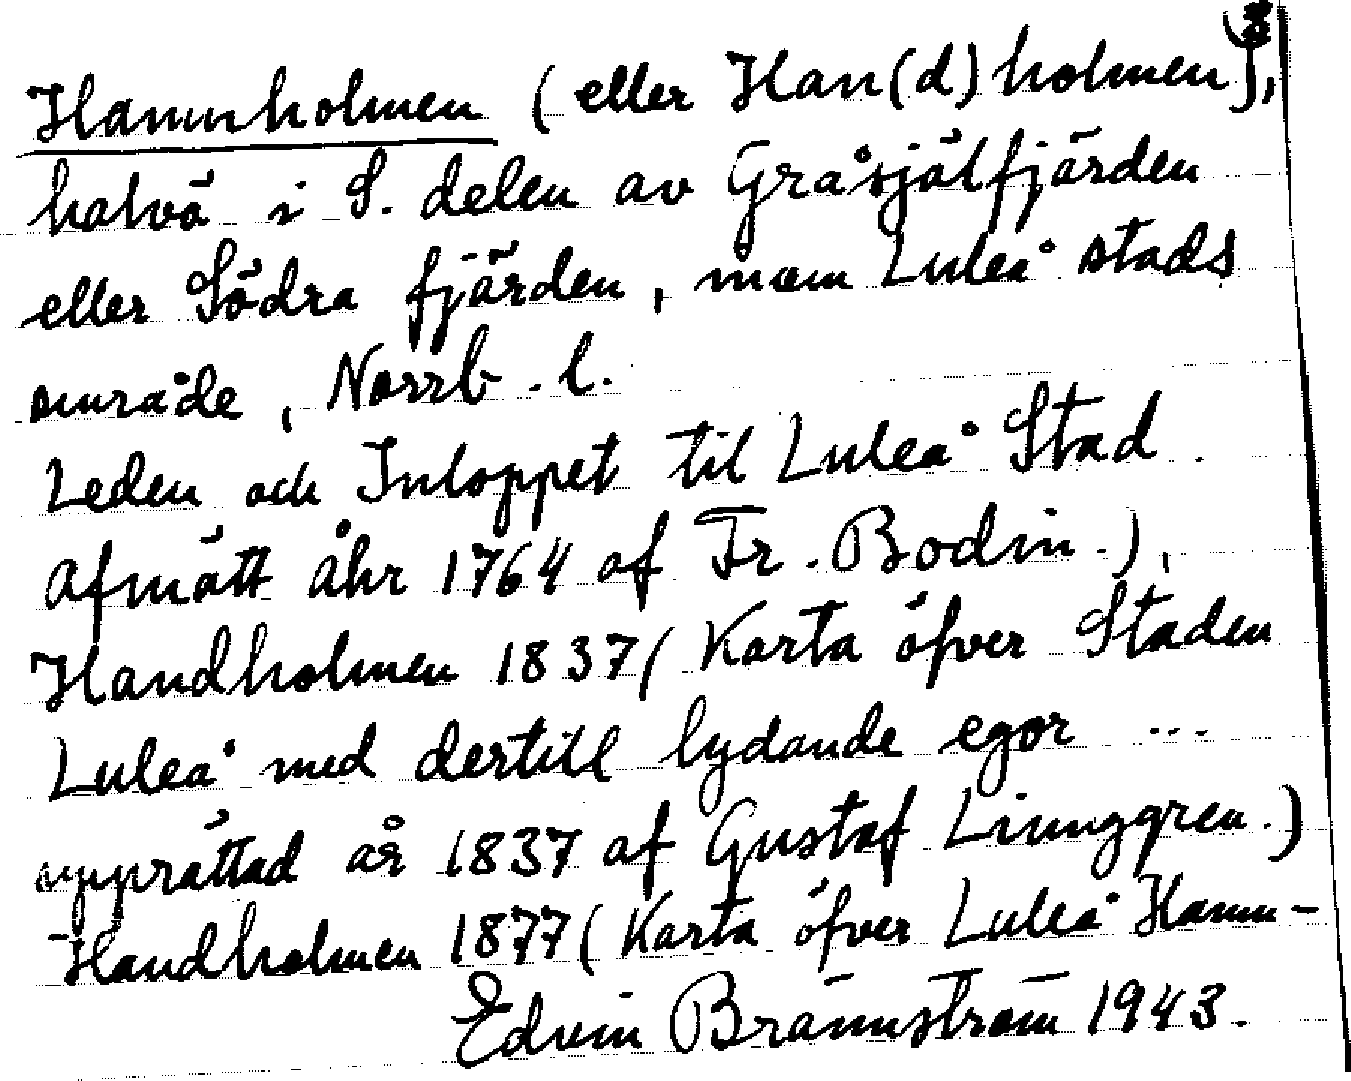 Hamnholmen (eller Han(d)holmen),
halvö i S. delen av Gråsjälfjärden
eller Södra fjärden, inom Luleå stads
område, Norrb. l.
Leden och Inloppet til Luleå Stad
afmätt åhr 1764 af Fr. Bodin.),
Handholmen 1837 (Karta öfver Staden
Luleå med dertill lydande egor ...
upprättad år 1837 af Gustaf Liunggren.)
Handholmen 1877 (Karta öfver Luleå Hamn-
Edvin Brännström 1943.